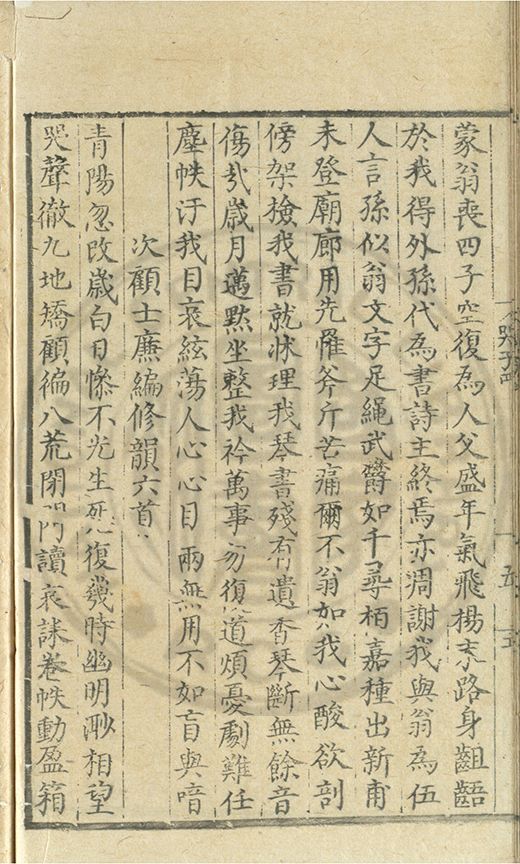 蒙翁喪四子空復為人父盛年氣飛揚末路身齟齬
於我得外孫代為書詩主終焉亦凋謝我與翁為伍
人言孫似翁文字足繩武欝如千尋栢嘉種出新甫
未登廟廊用先罹斧斤苦痛爾不翁如我心酸欲剖
傍架檢我書就牀理我琴書殘有遺香琴斷無餘音
傷哉歲月邁默坐整我衿萬事勿復道煩憂劇難任
塵帙汙我目哀絃蕩人心心目兩無用不如盲與喑
次顧士廉編修韻六首
青陽忽改歲白日慘不光生死復幾時幽明渺相望
哭聲徹九地矯顧徧八荒閉門讀哀誄卷帙動盈箱